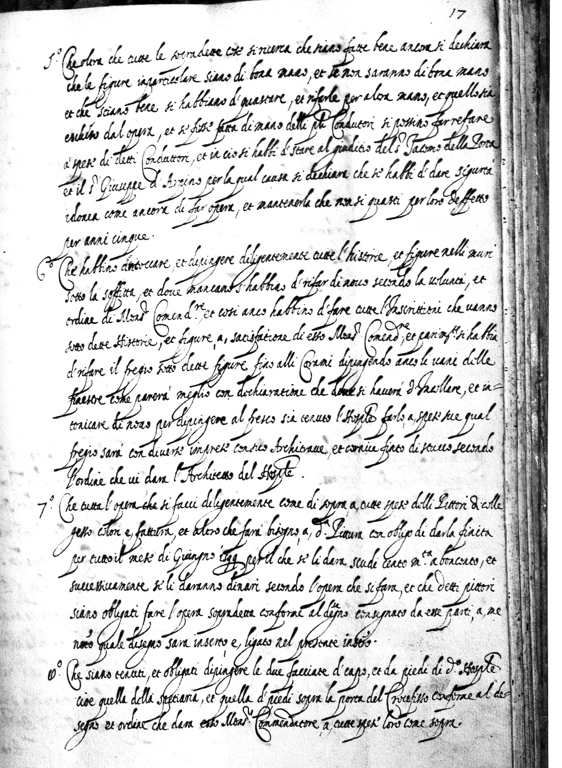 17
5.° Che oltra che tutte le sopradette cose si ricerca che siano fatte bene ancora si dechiara
che le figure in particolare siano di bona mano, et se non saranno di bona mano
et che sciano bene si habbiano d'guastare, et rifarle per altra mano, et quello sia
dal opera, et se fusse fatta di mano delli Conduttori si possino far refare
a spese di detti Conduttori, et in cio si habbi d'stare al giuditio del S.r Jacomo della Porta
et il S.r Giuseppe d'Arpino per la qual causa si dechiara che si habbi d' dare sigurtà
idonea come ancora di far opera, et mantenerla che non si guasti per loro deffetto
per anni cinque.
6.° Che habbino d'ritoccare, et depingere diligentemente tutte l'historie, et figure nelli muri
sotto la soffitta, et dove mancano s'habbino d'rifar di novo secondo la volontà, et
ordine di Mons.r Comend.re, et così anco habbino d'fare tutte l'Inscrittioni che vanno
sotto dette Historie, et figure, a, satisfatione di esso Mons.r Comend.re, et parim.te si habbia
d'rifare il fregio sotto dette figure fino alli Corami dipingendo anco li vani delle
finestre come parerà meglio con dechiaratione che dove si haverà d' Incollare, et in-
tonicare di novo per depingere al fresco sia tenuto l'Hosp.le farlo a spese sue qual
fregio sarà con diverse imprese con suo Architrave, et cornice finto di stucco secondo
l'ordine che vi darà l'Architetto del Hosp.le.
7.° Che tutta l'opera che si facci diligentemente come di sopra a, tutte spese delli Pittori di colle
gesso colori e, fattura, et coloro che farà bisogno, a, d.a Pittura con obligo di darla finita
per tutto il mese di Giungno per il che se li darà scudi cento m.ta a bonconto, et
successivamente se li daranno dinari secondo l'opera che si farà, et che detti pittori
siano obligati fare l'opera sopradetta conforme al disegno consignato da esse parti, a, me
noto quale disegno sarà inserto e, ligato nel presente
8.° Che siano tenuti, et obligati dipingere le due facciate d' capo, et da piedi di d.o Hosp.le
cioè quella della spetiaria, et quella d' piedi sopra la porta del Crocefisso conforme al di-
segno et ordine che darà esso Mons.r Commendatore, a, tutte spese loro come sopra.